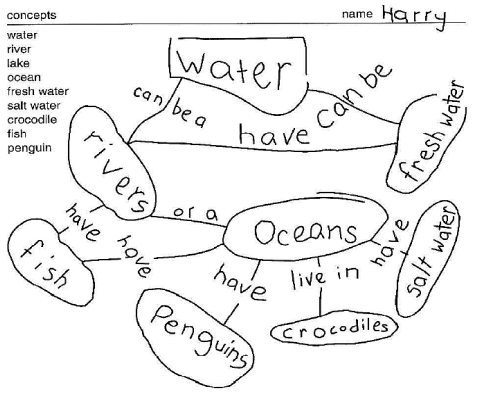 concepts
name Harry
water
river
lake
ocean
fresh water
salt water
crocodile
fish
penguin
Water
can be a
can be
have
rivers
fresh water
or a
Oceans
have
have
fish
have
live in
have
salt water
Penguins
crocodiles